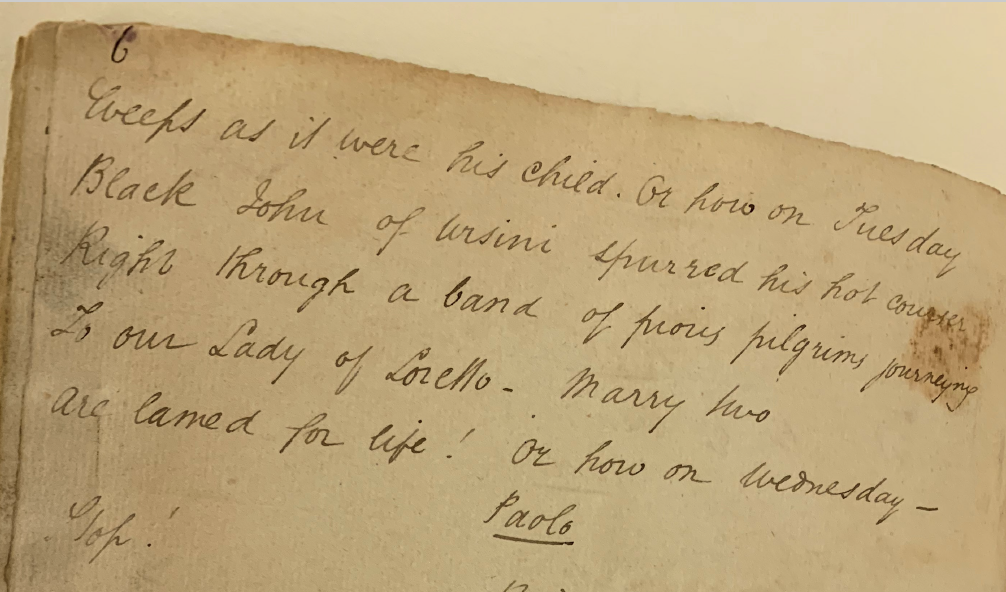 6
Weeps as it were his child. Or how on Tuesday
Black John of Ursini spurred his hot courser
Right through a band of pious pilgrims journeying
To our Lady of Loretto - Marry two
are lamed for life! Or how on Wednesday -
Paolo
Stop!